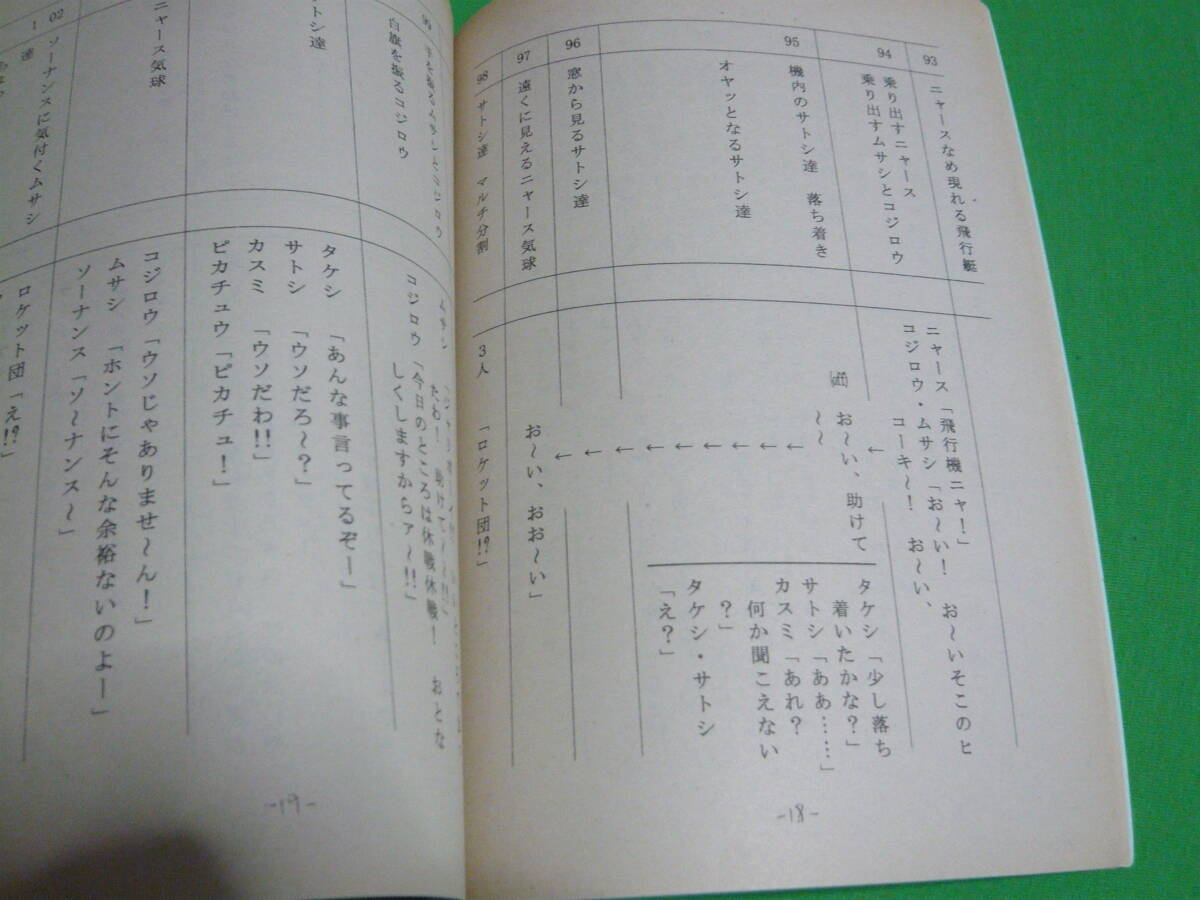 93
ニャースなめ現れる飛行艇
ニャース「飛行機ニャ!」
コジロウ・ムサシ「お〜い! お〜いそこのヒ
コーキ〜! お〜い、
94
乗り出すニャース
乗り出すムサシとコジロウ
←
95
機内のサトシ達 落ち着き
お〜い、助けて
〜〜
タケシ「少し落ち
着いたかな?」
サトシ「ああ……」
カスミ「あれ?
何か聞こえない
?」
タケシ・サトシ
「え?」
オヤッとなるサトシ達
←
←
←
←
←
←
←
96
窓から見るサトシ達
←
97
遠くに見えるニャース気球
お〜い、おお〜い」
98
サトシ達 マルチ分割
3人 「ロケット団!?」
-18-
99
手を振るムサシとコジロウ
白旗を振るコジロウ
ムサシ
たわ! 助けて〜〜!!」
コジロウ「今日のところは休戦休戦! おとな
しくしますからァ〜!!」
サトシ達
タケシ 「あんな事言ってるぞー」
サトシ 「ウソだろ〜?」
カスミ 「ウソだわ!!」
ピカチュウ「ピカチュ!」
ニャース気球
コジロウ「ウソじゃありませ〜ん!」
ムサシ 「ホントにそんな余裕ないのよー」
ソーナンス「ソ〜ナンス〜」
102
ソーナンスに気付くムサシ
達
ロケット団「え!?」
-19-